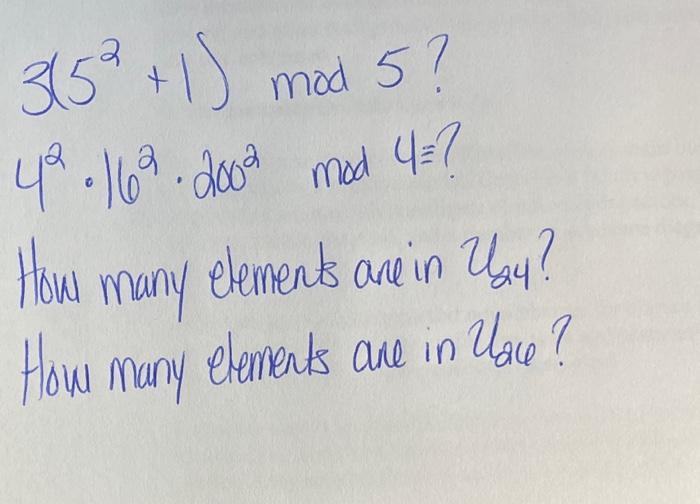 3(5² + 1) mod 5?
4² · 16² · 200² mod 4≡?
How many elements are in U₂₄?
How many elements are in U₂₆?